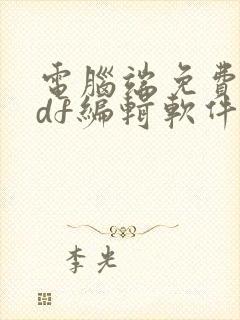 電腦端免費
df編輯軟件
李光